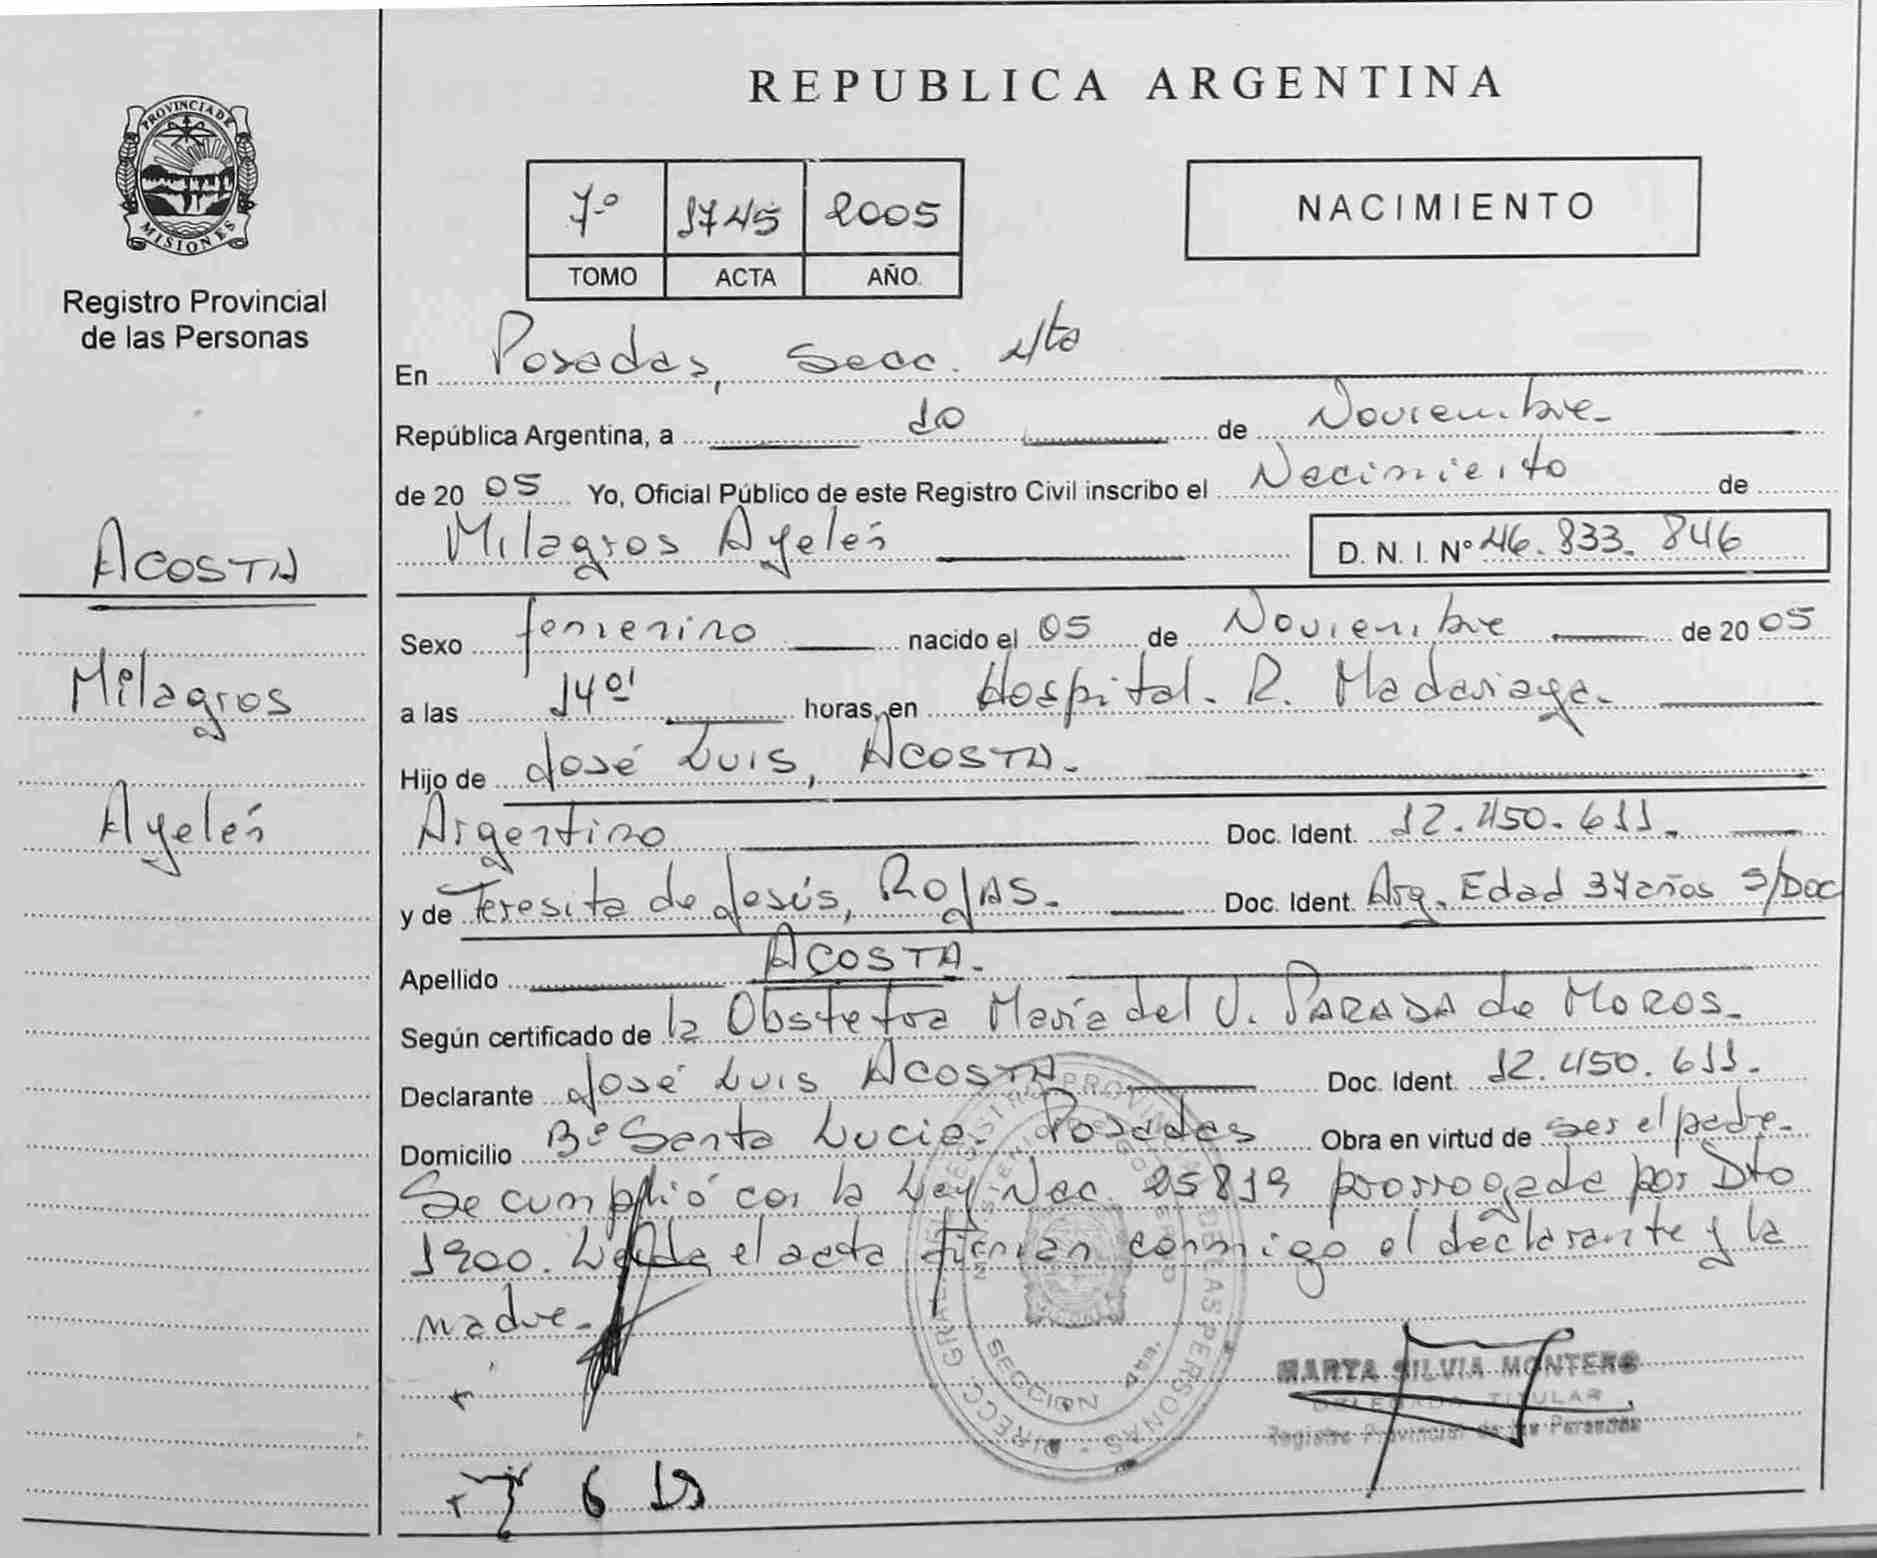 PROVINCIA DE
MISIONES
Registro Provincial
de las Personas
ACOSTA
Milagros
Ayelén
REPUBLICA ARGENTINA
7º 1745 2005
TOMO ACTA AÑO
NACIMIENTO
En Posadas, Secc. 4ta
República Argentina, a 10 de Noviembre
de 2005 Yo, Oficial Público de este Registro Civil inscribo el Nacimiento de
Milagros Ayelén D. N. I. Nº 46.833.846
Sexo femenino nacido el 05 de Noviembre de 2005
a las 14 horas, en Hospital. R. Madariaga.
Hijo de José Luis, ACOSTA.
Argentino Doc. Ident. 12.450.611.
y de Teresita de Jesús, ROJAS. Doc. Ident. Arg. Edad 34 años S/Doc
Apellido ACOSTA.
Según certificado de la Obstetra María del V. PARADA de MOROS.
Declarante José Luis ACOSTA Doc. Ident. 12.450.611.
Domicilio Bº Santa Lucia. Posadas Obra en virtud de ser el padre.
Se cumplió con la Ley Nac. 25819 prorrogada por Dto
1900. Leída el acta firman conmigo el declarante y la
madre.
MARTA SILVIA MONTERO
DELEGADA TITULAR
Registro Provincial de las Personas